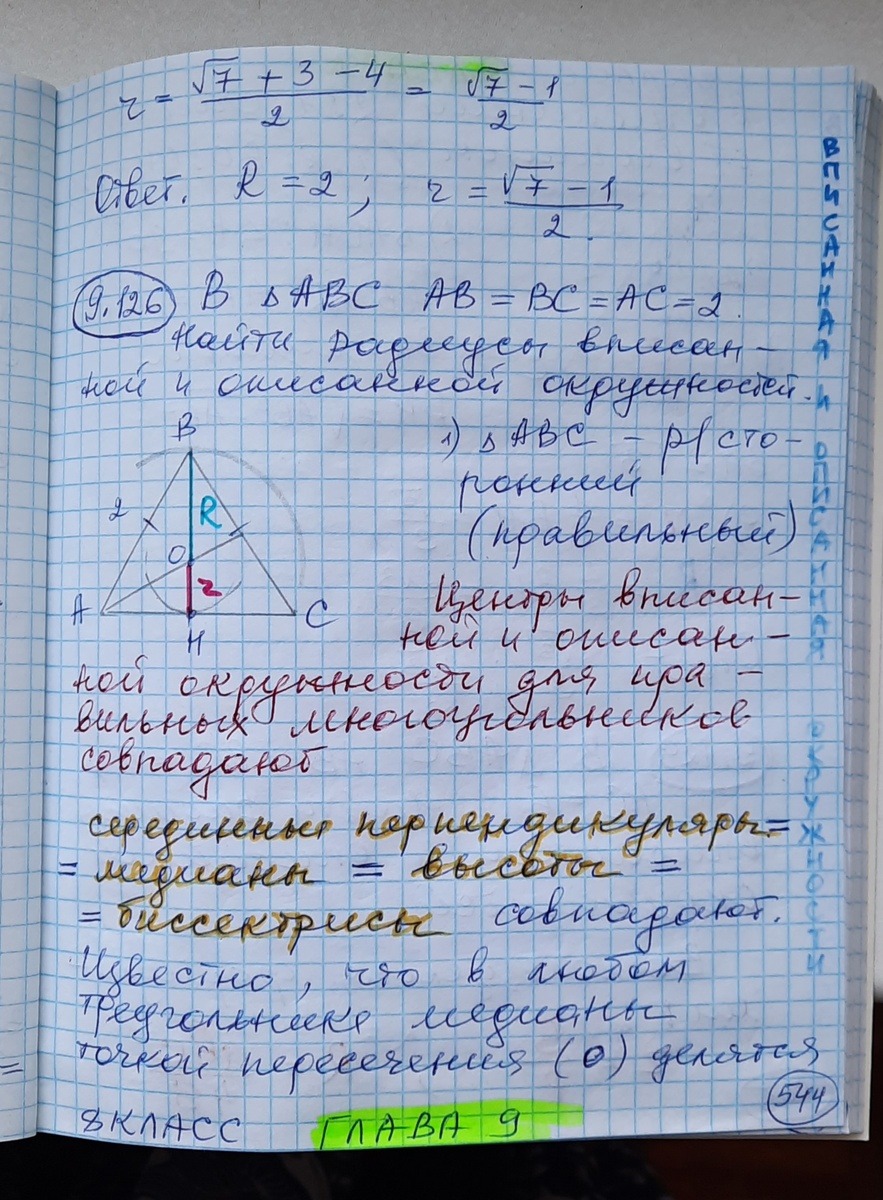 r = √7 + 3 - 4 / 2 = √7 - 1 / 2
Ответ. R = 2 ; r = √7 - 1 / 2.
9.126 В △ABC AB = BC = AC = 2.
Найти радиусы вписан-
ной и описанной окружностей.
B
1) △ABC - р/сто-
ронний
(правильный)
2
R
O
r
A
H
C
Центры вписан-
ной и описан-
ной окружности для пра-
вильных многоугольников
совпадают
серединные перпендикуляры=
= медианы = высоты =
= биссектрисы совпадают.
Известно, что в любом
треугольнике медианы
точкой пересечения (О) делятся
544
8 КЛАСС ГЛАВА 9
ВПИСАННАЯ И ОПИСАННАЯ ОКРУЖНОСТИ